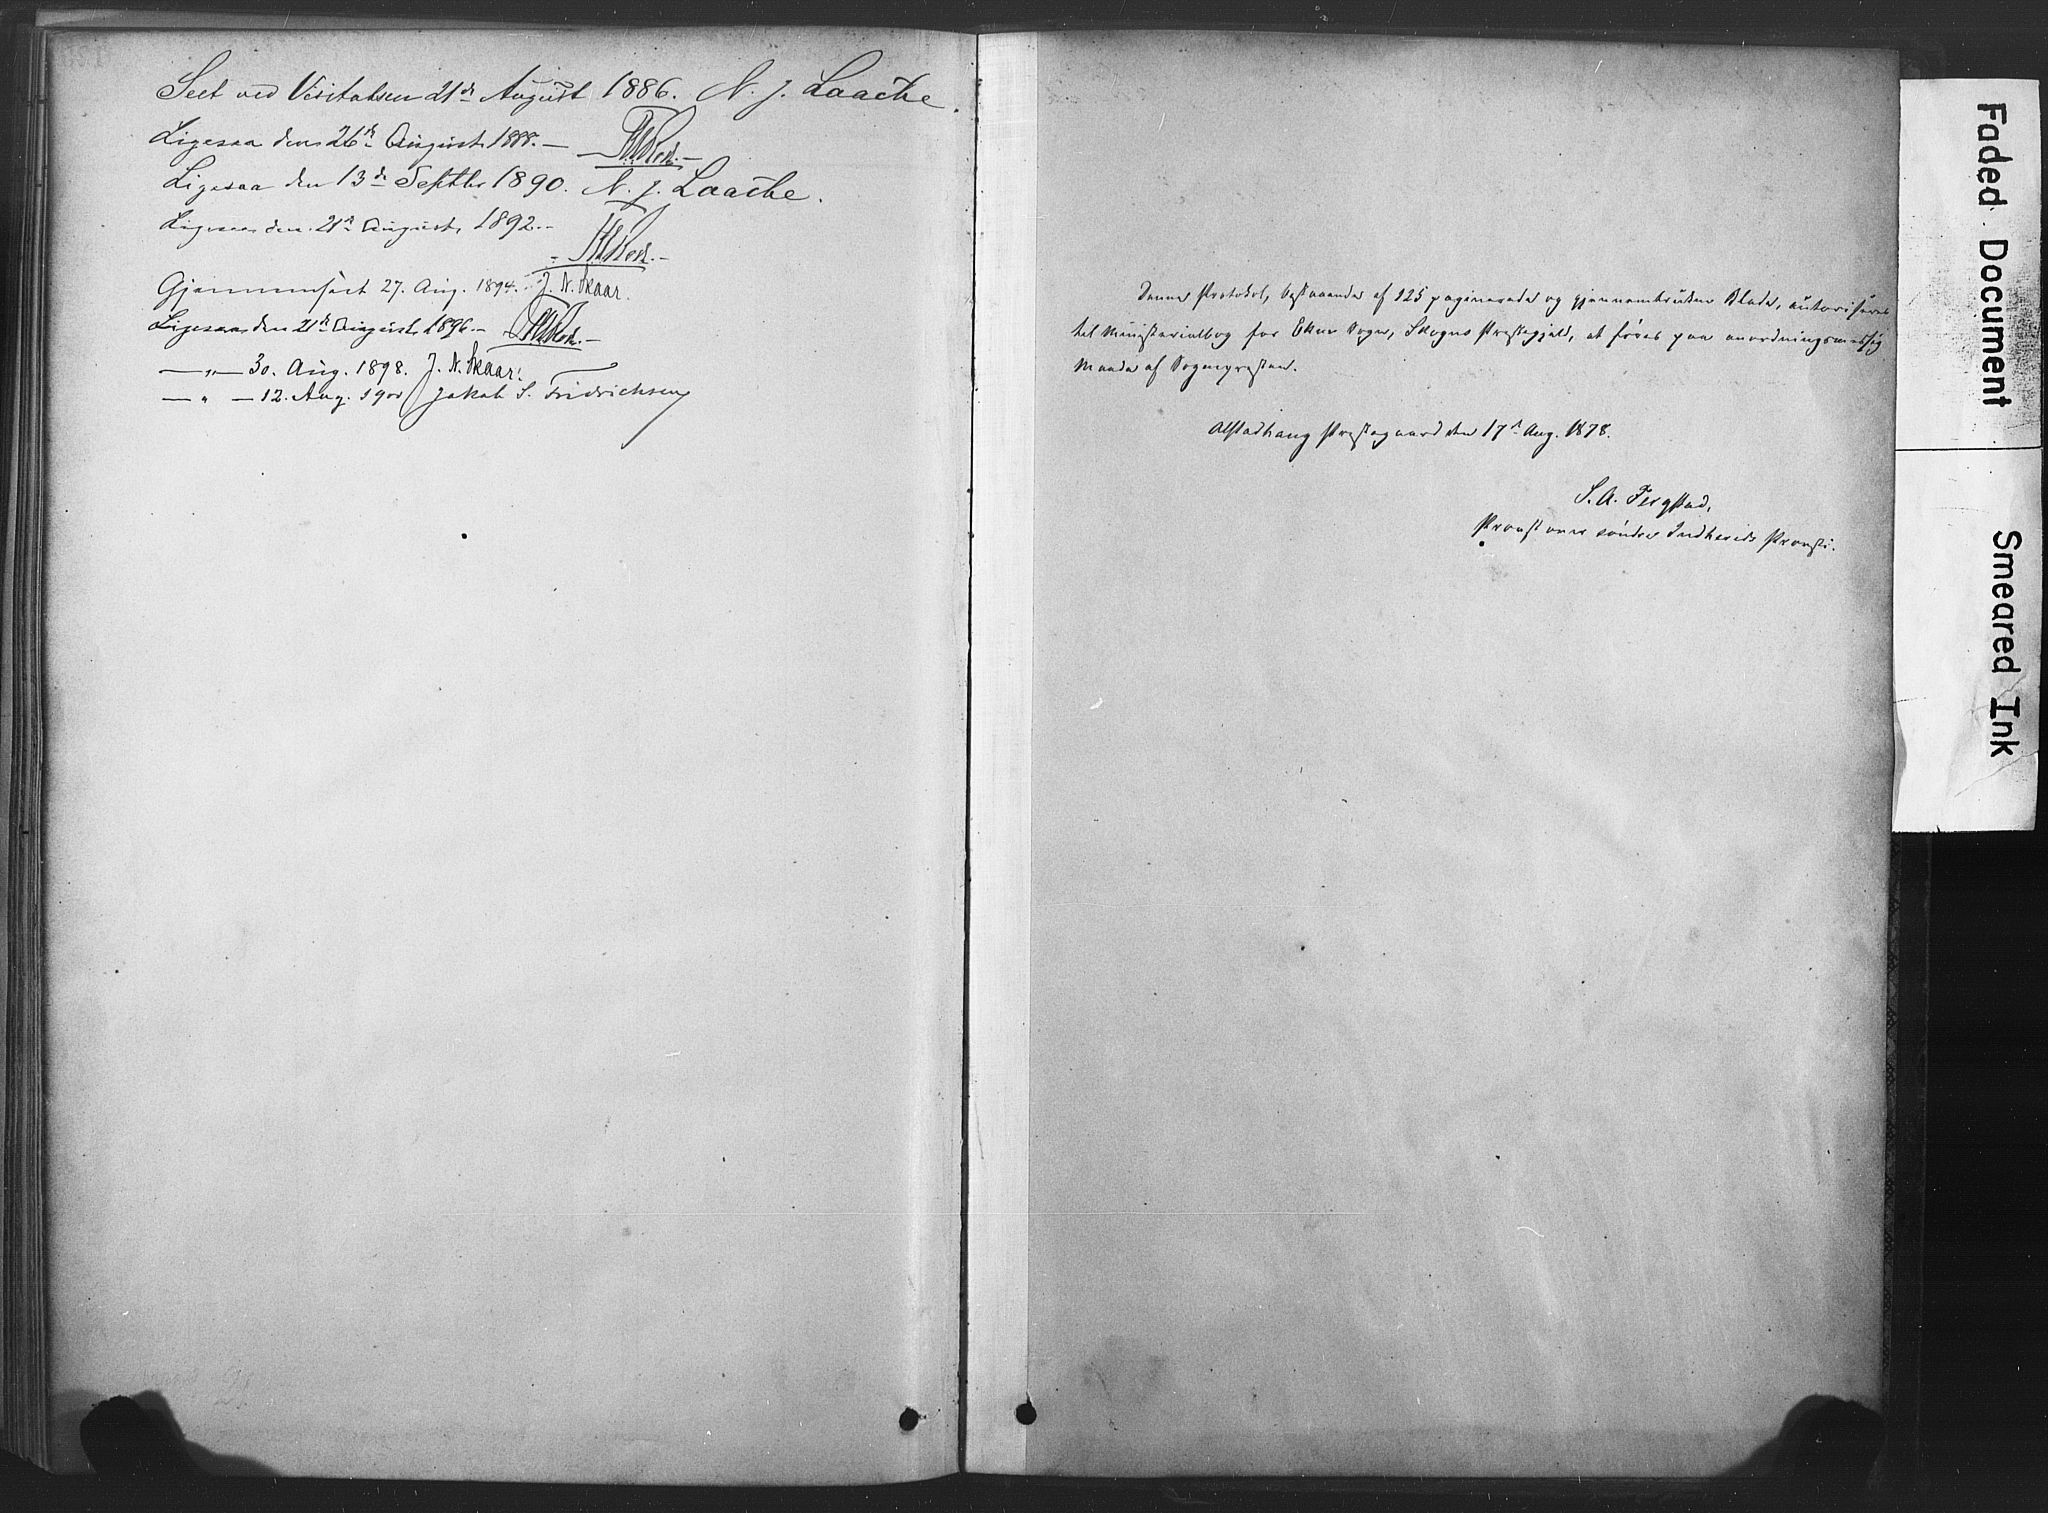 Seet ved Visitatsen 21de August 1886. N. J. Laache.
Ligesaa den 26de August 1888. —
Ligesaa den 13de Septbr 1890. N. J. Laache.
Ligesaa den 21de August 1892. —
Gjennemseet 27. Aug. 1894. J. N. Skaar.
Ligesaa den 21de August 1896 —
— " — 30. Aug. 1898. J. N. Skaar.
— " — 12. Aug. 1900 Jakob S. Fridrichsen
Denne Protokol, bestaaende af 225 paginerede og gjennemtrukne Blade, autoriseres
til Ministerialbog for Ekne Sogn, Skogns Præstegjeld, at føres paa anordningsmæssig
Maade af Sognepræsten.
Alstadhaug Præstegaard den 17de Aug. 1878.
S. A. Fergstad,
Provst over søndre Indherreds Provsti.
Faded Document
Smeared Ink